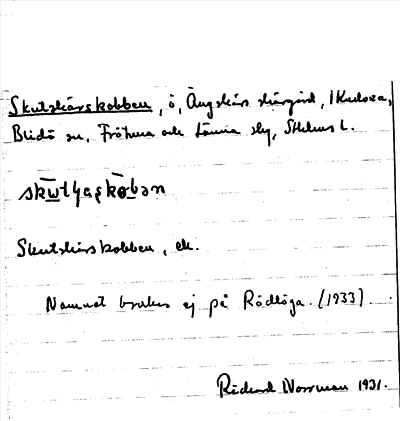 Skutskärskobben, ö, Ängskärs skärgård, 1 Kudoxa,
Blidö sn, Frötuna och Länna slg, Sthlms l.
skw̲tɥaʂkɵ̲bən
Skutskärskobben, ek.
Namnet brukas ej på Rödlöga. (1933).
Rickard Norrman 1931.